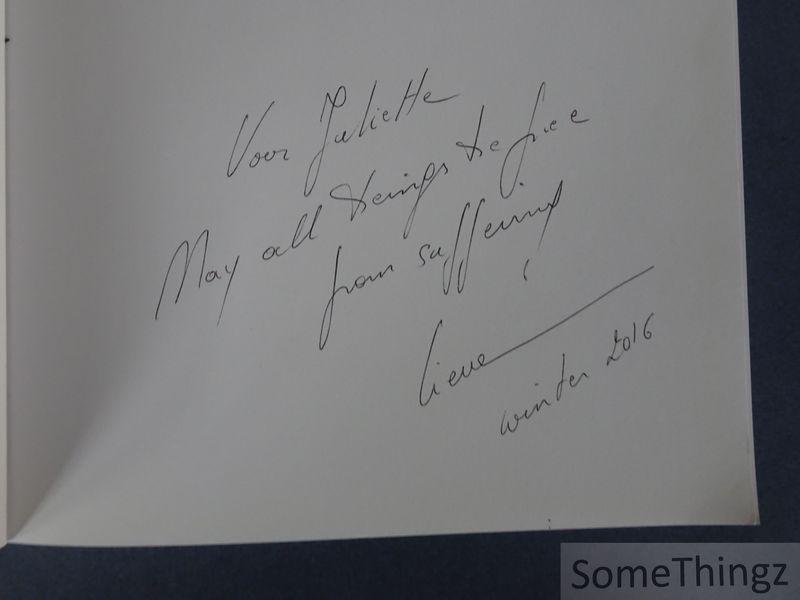 Voor Juliette
May all beings be free
from suffering
Lieve
winter 2016
SomeThingz